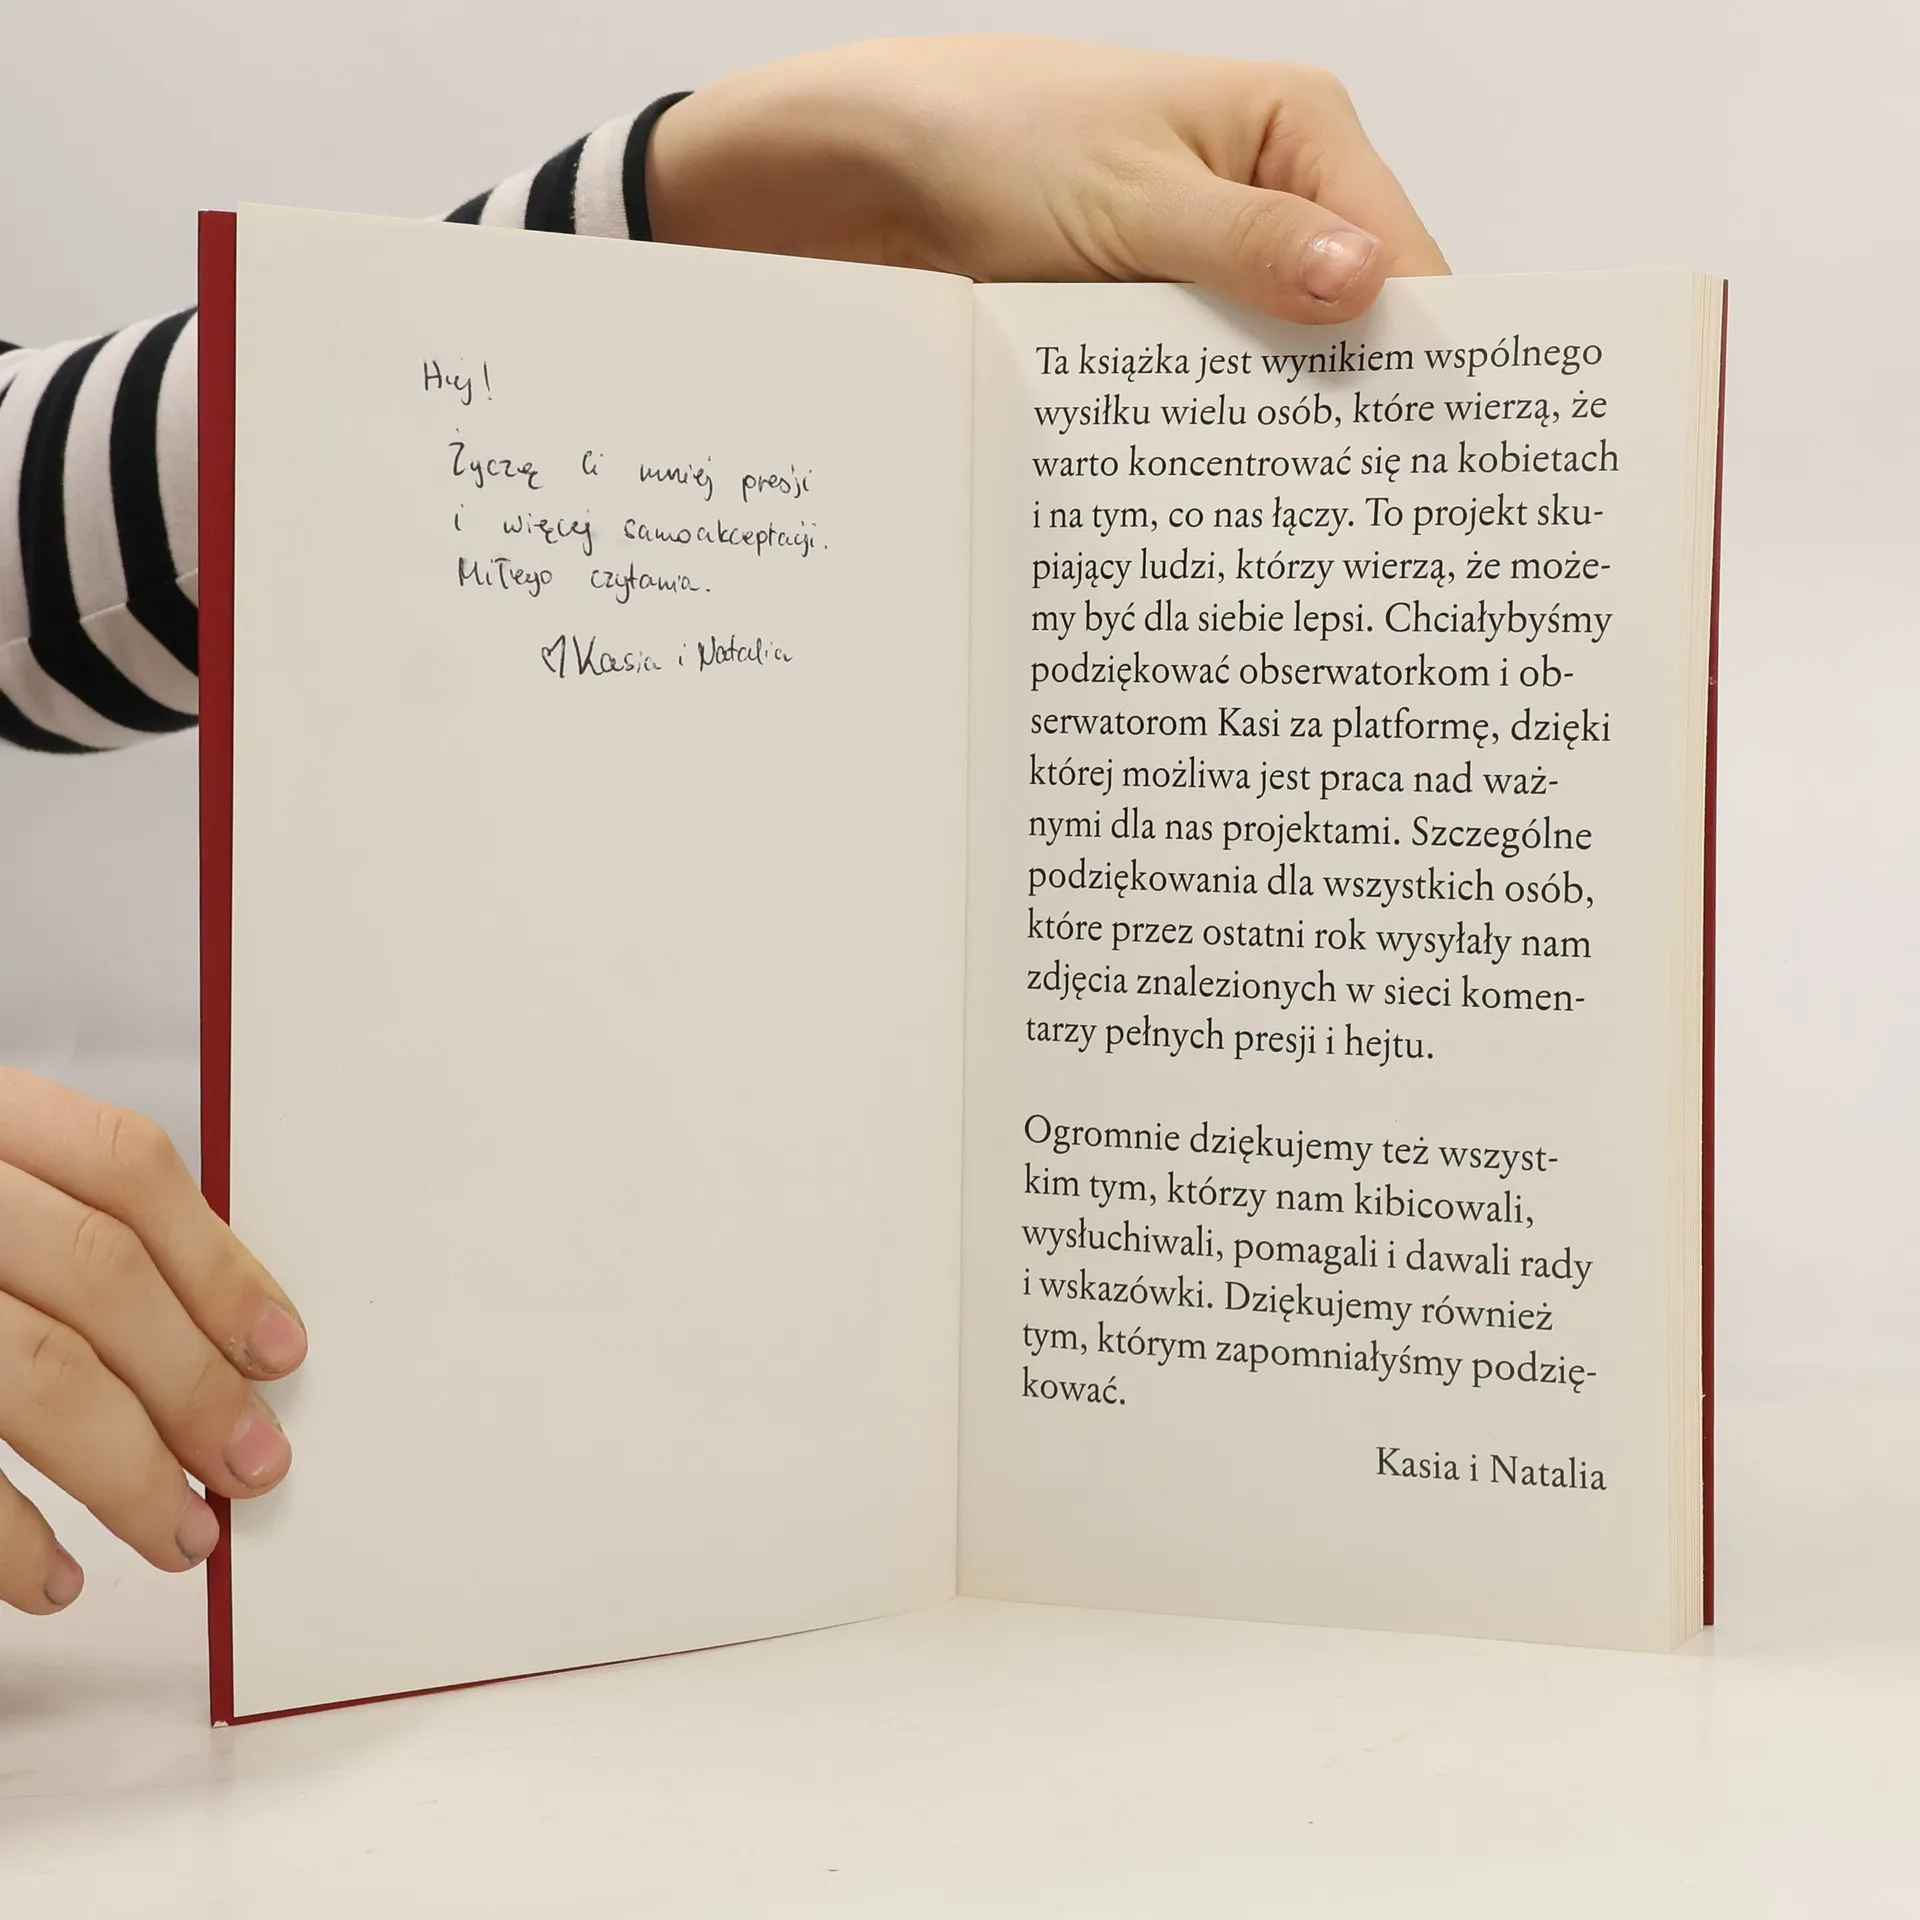 Hej!
Życzę Ci mniej presji
i więcej samoakceptacji.
Miłego czytania.
♡ Kasia i Natalia
Ta książka jest wynikiem wspólnego
wysiłku wielu osób, które wierzą, że
warto koncentrować się na kobietach
i na tym, co nas łączy. To projekt sku-
piający ludzi, którzy wierzą, że może-
my być dla siebie lepsi. Chciałybyśmy
podziękować obserwatorkom i ob-
serwatorom Kasi za platformę, dzięki
której możliwa jest praca nad waż-
nymi dla nas projektami. Szczególne
podziękowania dla wszystkich osób,
które przez ostatni rok wysyłały nam
zdjęcia znalezionych w sieci komen-
tarzy pełnych presji i hejtu.
Ogromnie dziękujemy też wszyst-
kim tym, którzy nam kibicowali,
wysłuchiwali, pomagali i dawali rady
i wskazówki. Dziękujemy również
tym, którym zapomniałyśmy podzię-
kować.
Kasia i Natalia